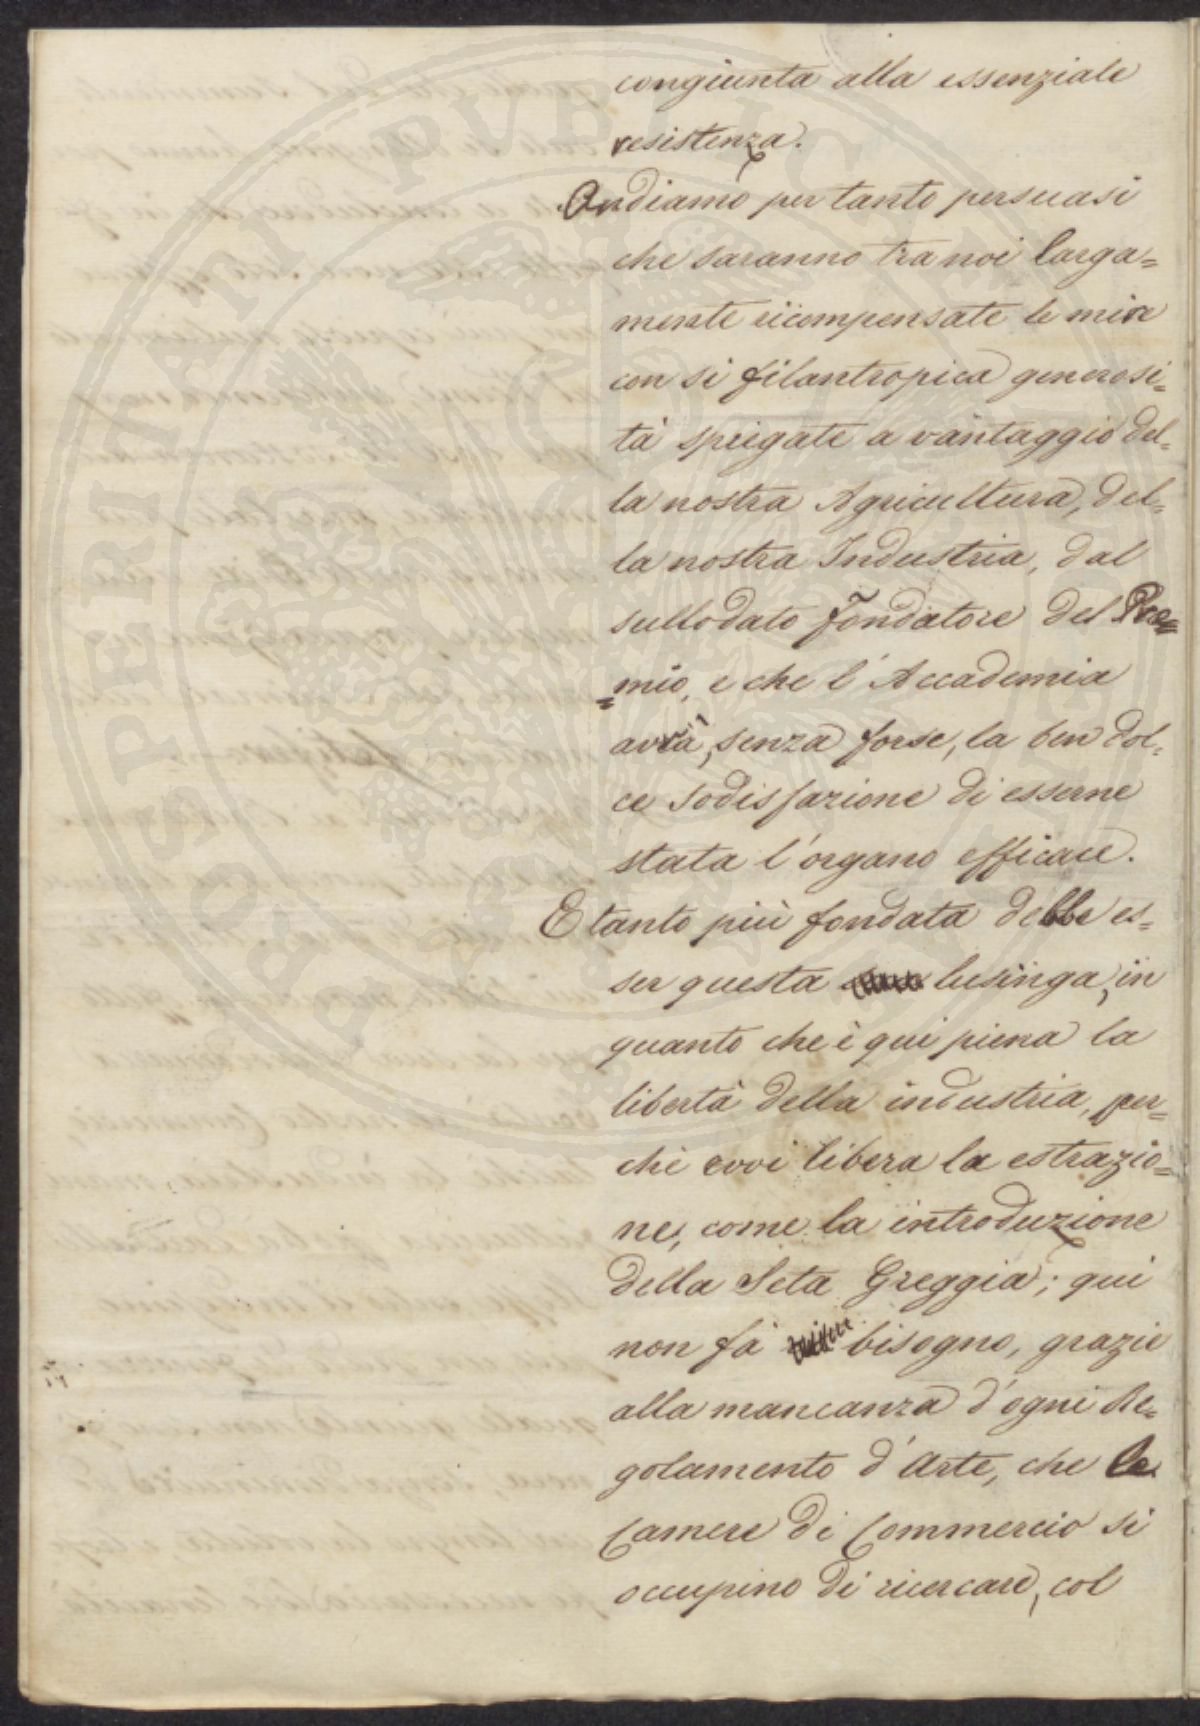 congiunta alla essenziale
resistenza.
Andiamo per tanto persuasi
che saranno tra noi larga=
mente ricompensate le mire
con si filantropica generosi=
tà spiegate a vantaggio del=
la nostra Agricultura, del=
la nostra Industria, dal
sullodato Fondatore del Pre=
=mio, e che l'Accademia
avrà, senza forse, la ben dol=
ce sodisfazione di esserne
stata l'organo efficace.
E tanto più fondata debbe es=
ser questa lusinga, in
quanto che è qui piena la
libertà della industria, per=
chè evvi libera la estrazio=
ne, come la introduzione
della Seta Greggia; qui
non fà bisogno, grazie
alla mancanza d'ogni Re=
golamento d'Arte, che le
Camere di Commercio si
occupino di ricercare, col
PROSPERITATI PUBLICAE